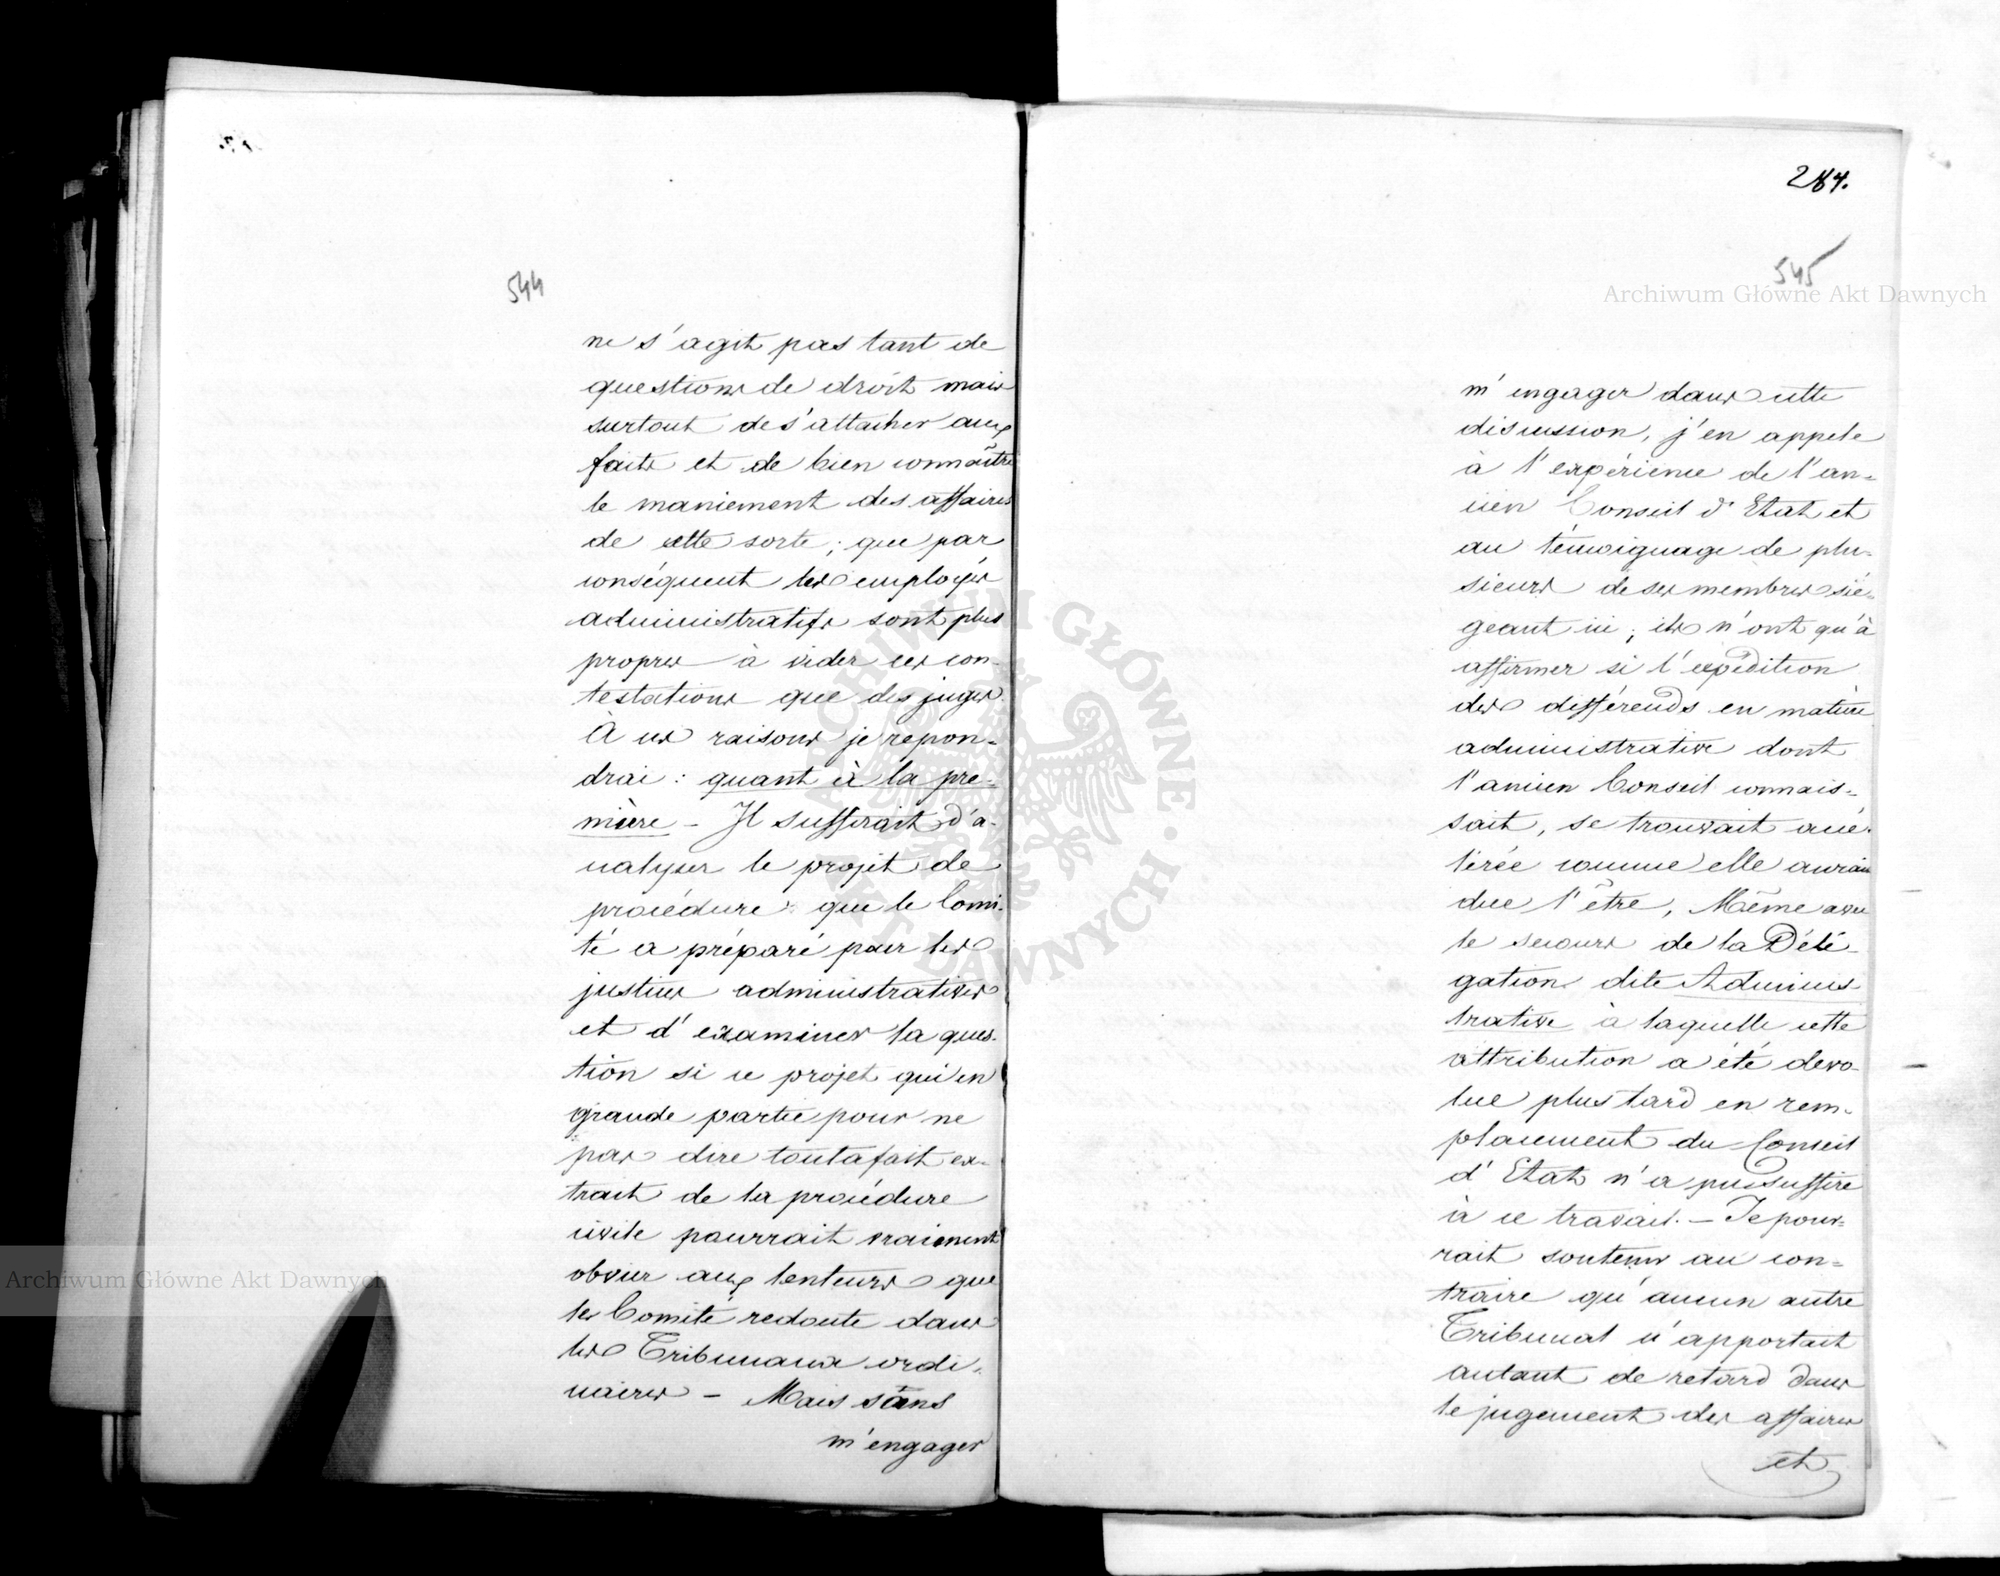 544
ne s'agit pas tant de
questions de droit mais
surtout de s'attacher aux
faits et de bien connaître
le maniement des affaires
de cette sorte; que par
conséquent les employés
administratifs sont plus
propres à vider ces con-
testations que des juges.
À ces raisons je repon-
drai : quant à la pre-
mière – Il suffirait d'a-
nalyser le projet de
procédure que le Comi-
té a préparé pour les
justices administratives
et d'examiner la ques-
tion si ce projet qui en
grande partie pour ne
pas dire toutafait ex-
trait de la procédure
civile pourrait vraiment
obvier aux lenteurs que
les Comité redoute dans
les Tribunaux ordi-
naires – Mais sans
m'engager
284.
545
m'engager dans cette
discussion, j'en appele
à l'expérience de l'an-
cien Conseil d'Etat et
au témoignage de plu-
sieurs de ses membres sié-
geant ici; ils n'ont qu'à
affirmer si l'expédition
des différends en matière
administrative dont
l'ancien Conseil connais-
sait, se trouvait accé-
lérée comme elle aurait
due l'être, Même avec
le secours de la Délé-
gation dite Adminis-
trative à laquelle cette
attribution a été dévo-
lue plus tard en rem-
placement du Conseil
d'Etat n'a pu suffire
à ce travail. – Je pour-
rait soutenir au con-
traire qu'aucun autre
Tribunal n'apportait
autant de retard dans
le jugement des affaires
et
Archiwum Główne Akt Dawnych
Archiwum Główne Akt Dawnych
ARCHIWUM GŁÓWNE · AKT DAWNYCH ·